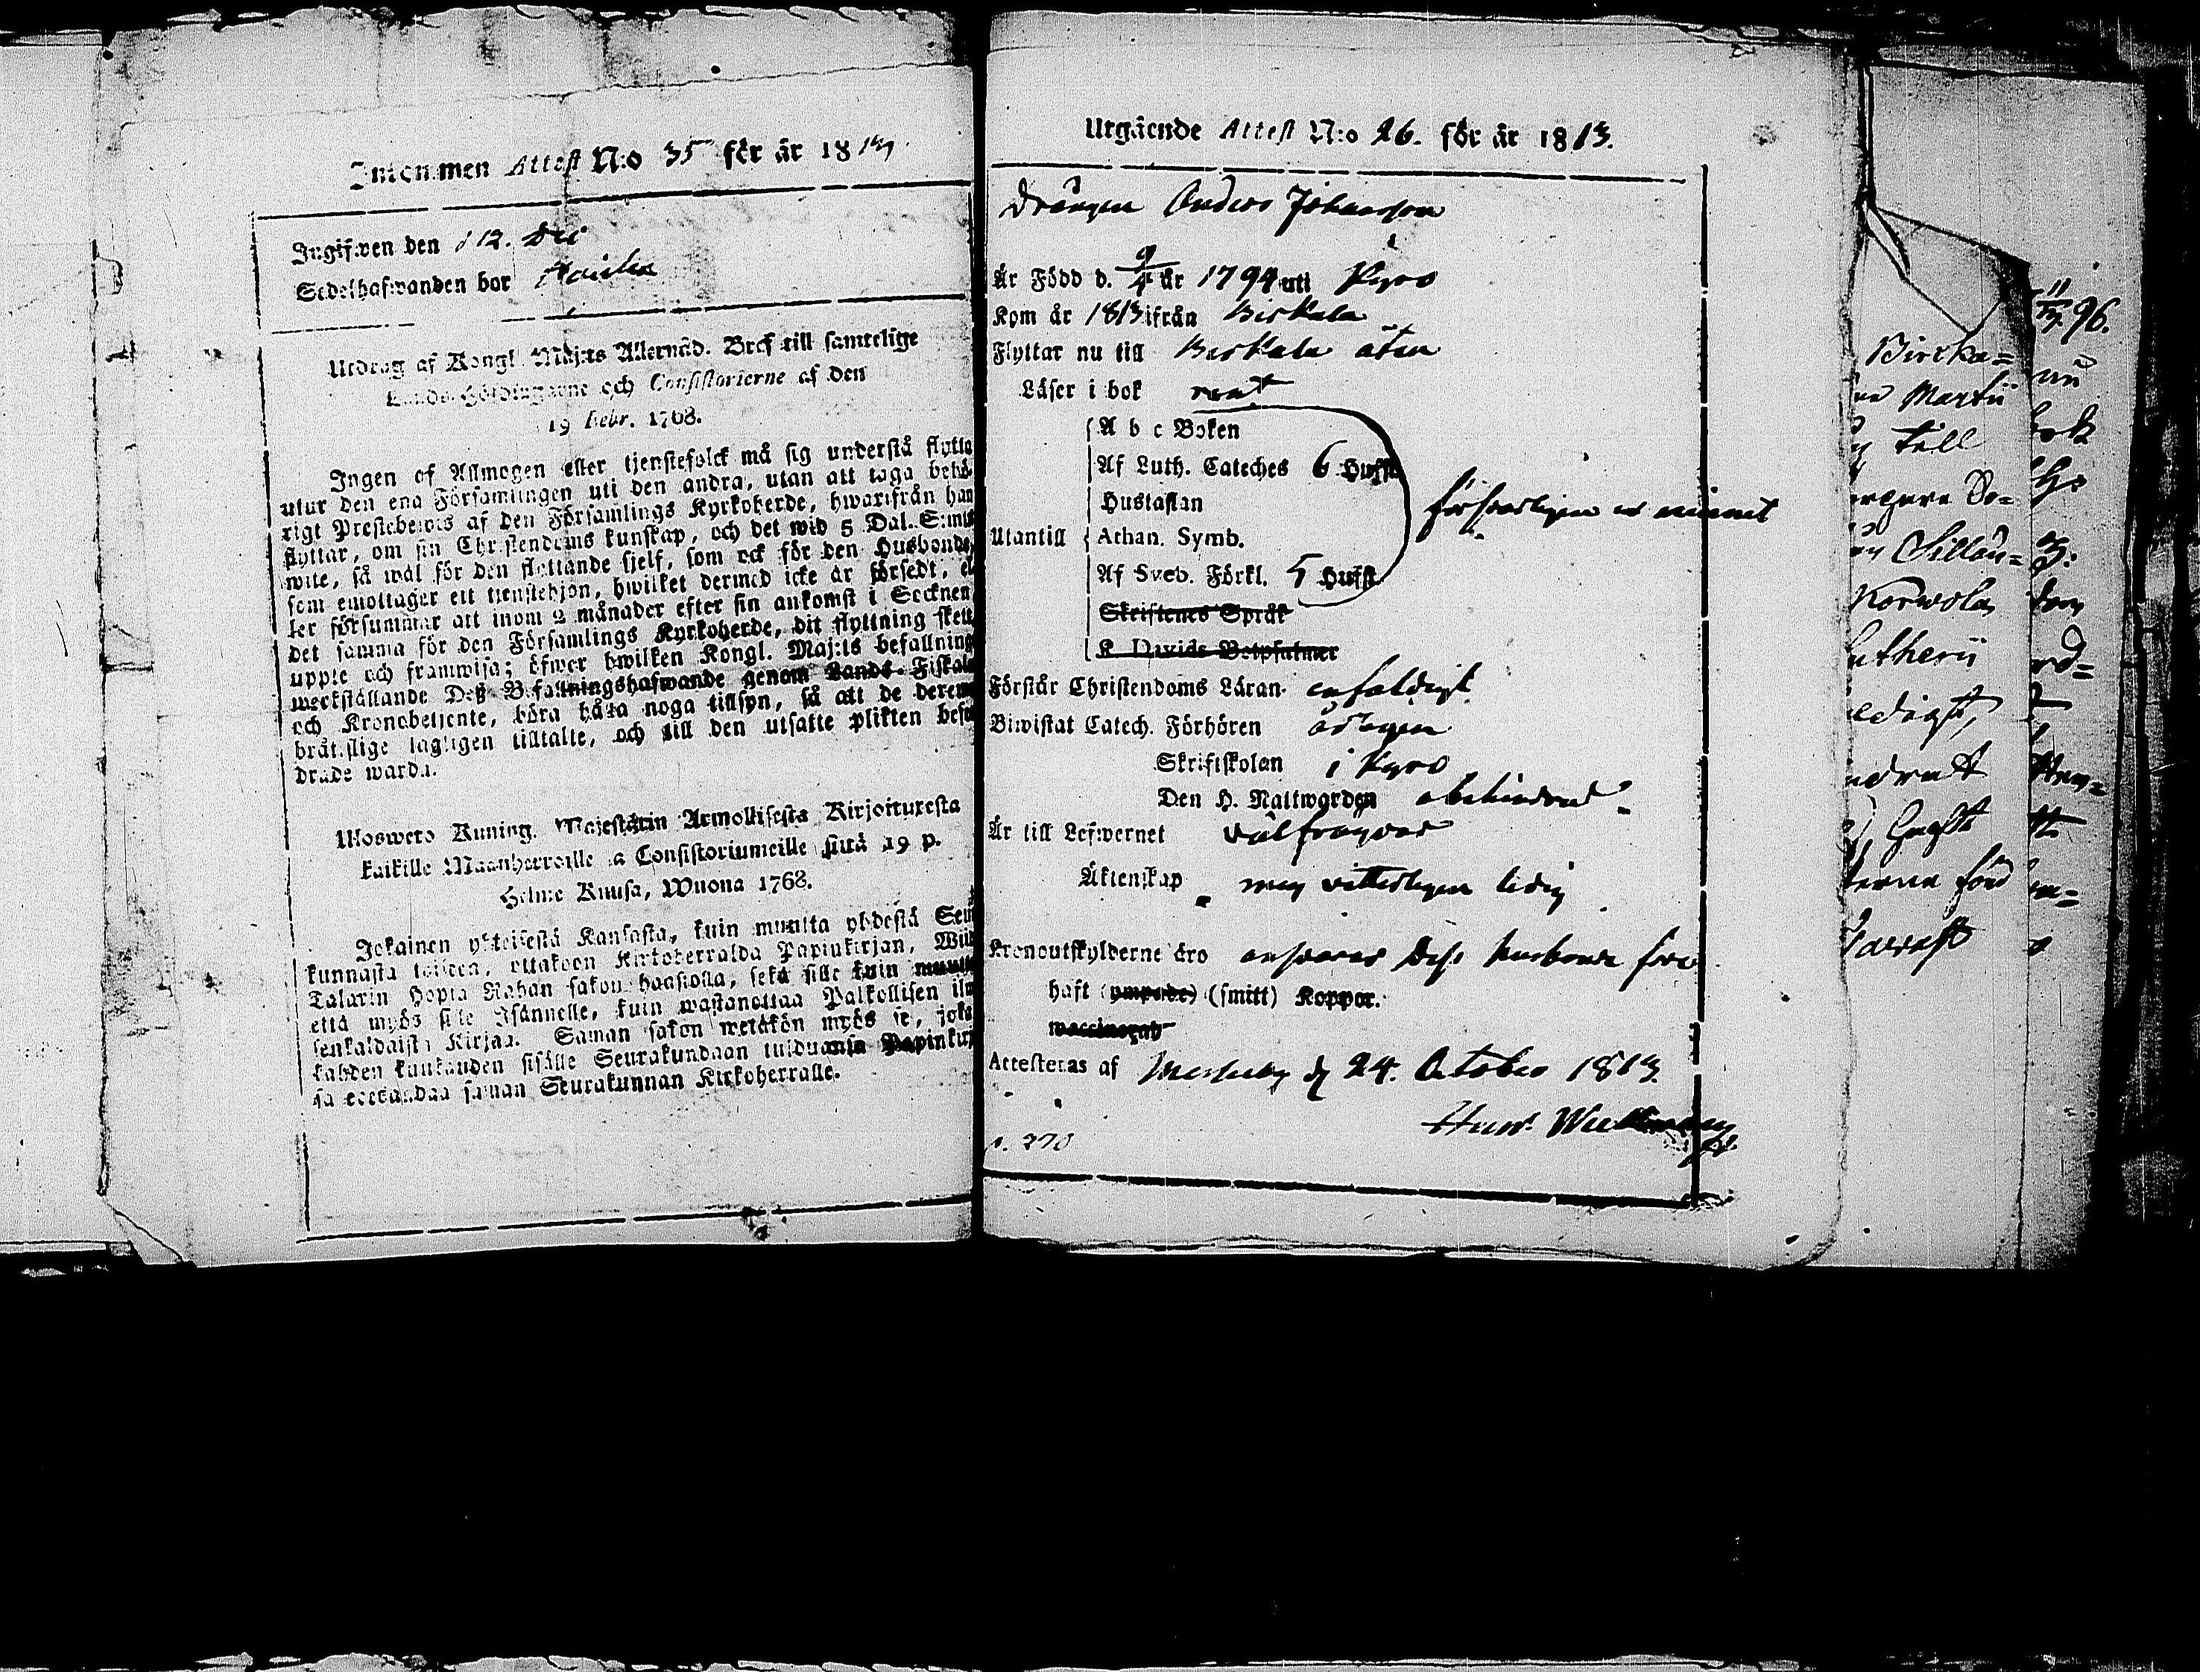 Inkommen Attest N:o 35 för år 1813
Ingifwen den d 12. Dec
Sedelhafwanden bor
Utdrag af Kongl. Maj:ts Allernåd. Bref till samtelige
Lands-Höfdingarne och Consistorierne af den
19 Febr. 1768.
Ingen af Allmogen eller tjenstefolck må sig understå flytta
utur den ena Församlingen uti den andra, utan att taga behö-
rigt Prestebewis af den Församlings Kyrkoherde, hwarifrån han
flyttar, om sin Christendoms kunskap, och det wid 5 Dal. S:mt
wite, så wäl för den flyttande sjelf, som ock för den Husbonde,
som emottager ett tjenstehjon, hwilket dermed icke är försedt, el-
ler försummar att inom 2 månader efter sin ankomst i Socknen
det samma för den Församlings Kyrkoherde, dit flyttning skett
uppte och framwisa; öfwer hwilken Kongl. Maj:ts befallning
werkställande Deß Befallningshafwande genom Lands-Fiskale
och Kronobetjente, böra håfa noga tillsyn, så att de derem
bråtslige lagligen tilltalte, och till den utsatte plikten befor
drade warda.
Ulosweto Kuning. Majestätin Armollisesta Kirjoituxesta
kaikille Maanherroille ja Consistoriumeille siitä 19 p.
Helme Kuusa, Wuona 1768.
Jokainen yhteisestä Kansasta, kuin muutta yhdestä Seu
kunnasta toiseen, ottakoon Kirkoherralda Papinkirjan, Wii
Talarin Hopia Rahan sakon haastolla, sekä sille kuin muutt
että myös sille Isännelle, kuin wastanottaa Palkollisen ilm
senkaldaista Kirjaa. Saman sakon wetäkön myös se, joka
kahden kuukauden sisälle Seurakundaan tulduansa Papinkir
sa edeskandaa saman Seurakunnan Kirkoherralle.
Utgående Attest N:o 26. för år 1813.
Drängen Anders Johansson
Är Född d. 9/4 år 1794 uti Kyro
Kom år 1813 ifrån Birkala
Flyttar nu till Birkala åter
Läser i bok rent
A b c Boken
Af Luth. Cateches 6 Hufst
Hustaflan
försvarligen ur minnet
Utantill Athan. Symb.
Af Sveb. Förkl. 5 Hufst
Skriftenes Språk
K. Davids Botpsalmer
Förstår Christendoms Läran enfaldigt
Biwistat Catech. Förhören
Skriftskolan i Kyro
Den H. Nattwarden obehindrad
Är till Lefwernet välfrägdad
Äktenskap mig vitterligen ledig
Kronoutskylderne äro ansvarar dess husbonde före
haft (ympade) (smitt) Koppor.
waccinerat
Attesteras af d 24. October 1813.
p. 270
11/3 96.
Bircka=
Martii
till
Korwola
Lutheri